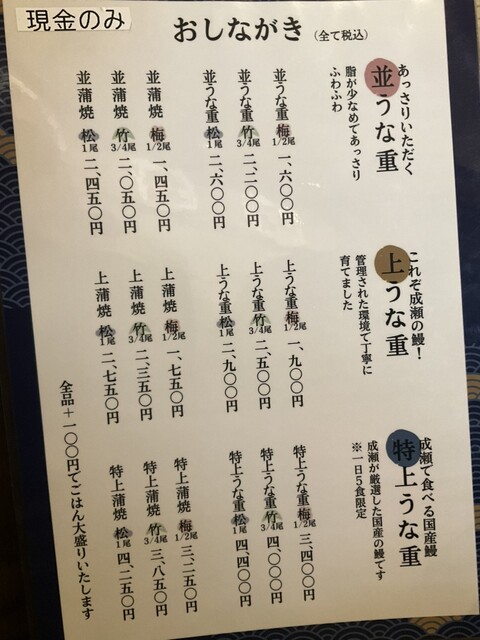 現金のみ
おしながき（全て税込）
あっさりいただく
並うな重
脂が少なめであっさり
ふわふわ
並うな重 梅 1/2尾 一、六〇〇円
並うな重 竹 3/4尾 二、二〇〇円
並うな重 松 1尾 二、六〇〇円
並蒲焼 梅 1/2尾 一、四五〇円
並蒲焼 竹 3/4尾 二、〇五〇円
並蒲焼 松 1尾 二、四五〇円
これぞ成瀬の鰻！
上うな重
管理された環境で丁寧に
育てました
上うな重 梅 1/2尾 一、九〇〇円
上うな重 竹 3/4尾 二、五〇〇円
上うな重 松 1尾 二、九〇〇円
上蒲焼 梅 1/2尾 一、七五〇円
上蒲焼 竹 3/4尾 二、三五〇円
上蒲焼 松 1尾 二、七五〇円
成瀬で食べる国産鰻
特上うな重
成瀬が厳選した国産の鰻です
※一日5食限定
特上うな重 梅 1/2尾 三、四〇〇円
特上うな重 竹 3/4尾 四、〇〇〇円
特上うな重 松 1尾 四、四〇〇円
特上蒲焼 梅 1/2尾 三、二五〇円
特上蒲焼 竹 3/4尾 三、八五〇円
特上蒲焼 松 1尾 四、二五〇円
全品＋一〇〇円でごはん大盛りいたします